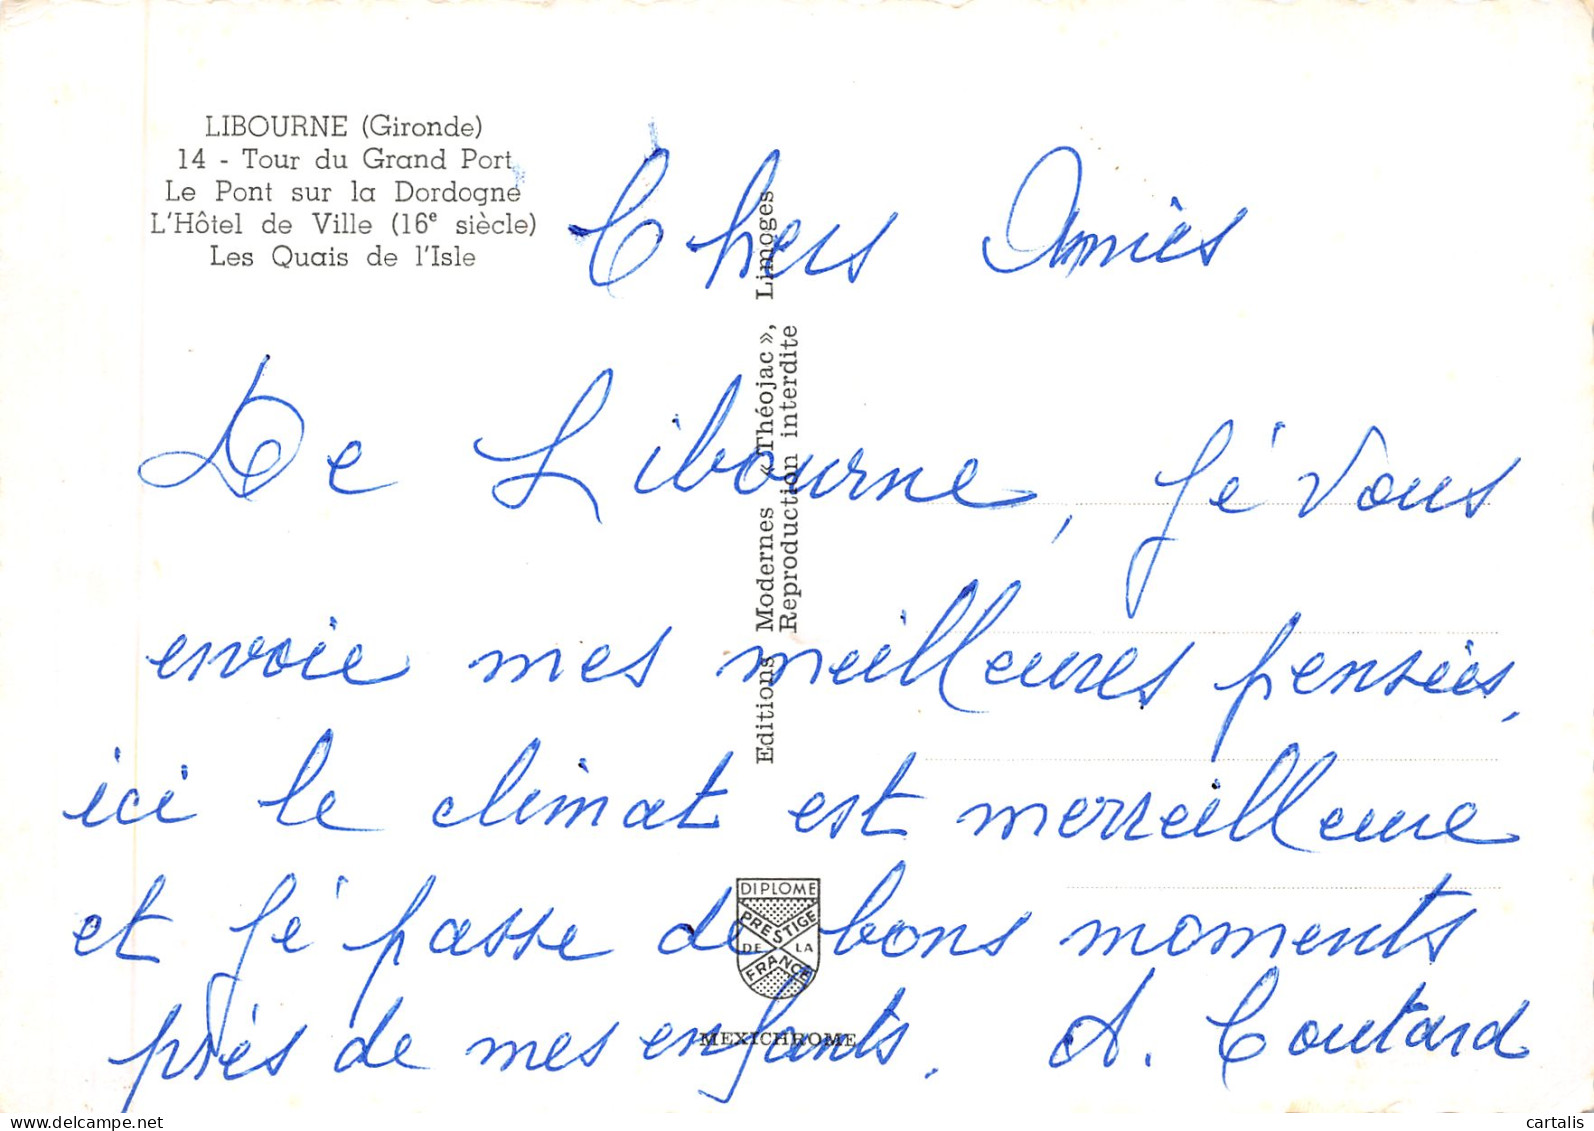 LIBOURNE (Gironde)
14 - Tour du Grand Port
Le Pont sur la Dordogne
L'Hôtel de Ville (16e siècle)
Les Quais de l'Isle
Chers Amies
De Libourne, Jé vous
envoie mes meilleures pensées,
ici le climat est merveilleure
et Jé passe de bons moments
près de mes enfants. A. Coutard
Editions Modernes «Théojac», Limoges
Reproduction interdite
DIPLOME
PRESTIGE
DE LA
FRANCE
MEXICHROME
cartalis
delcampe.net